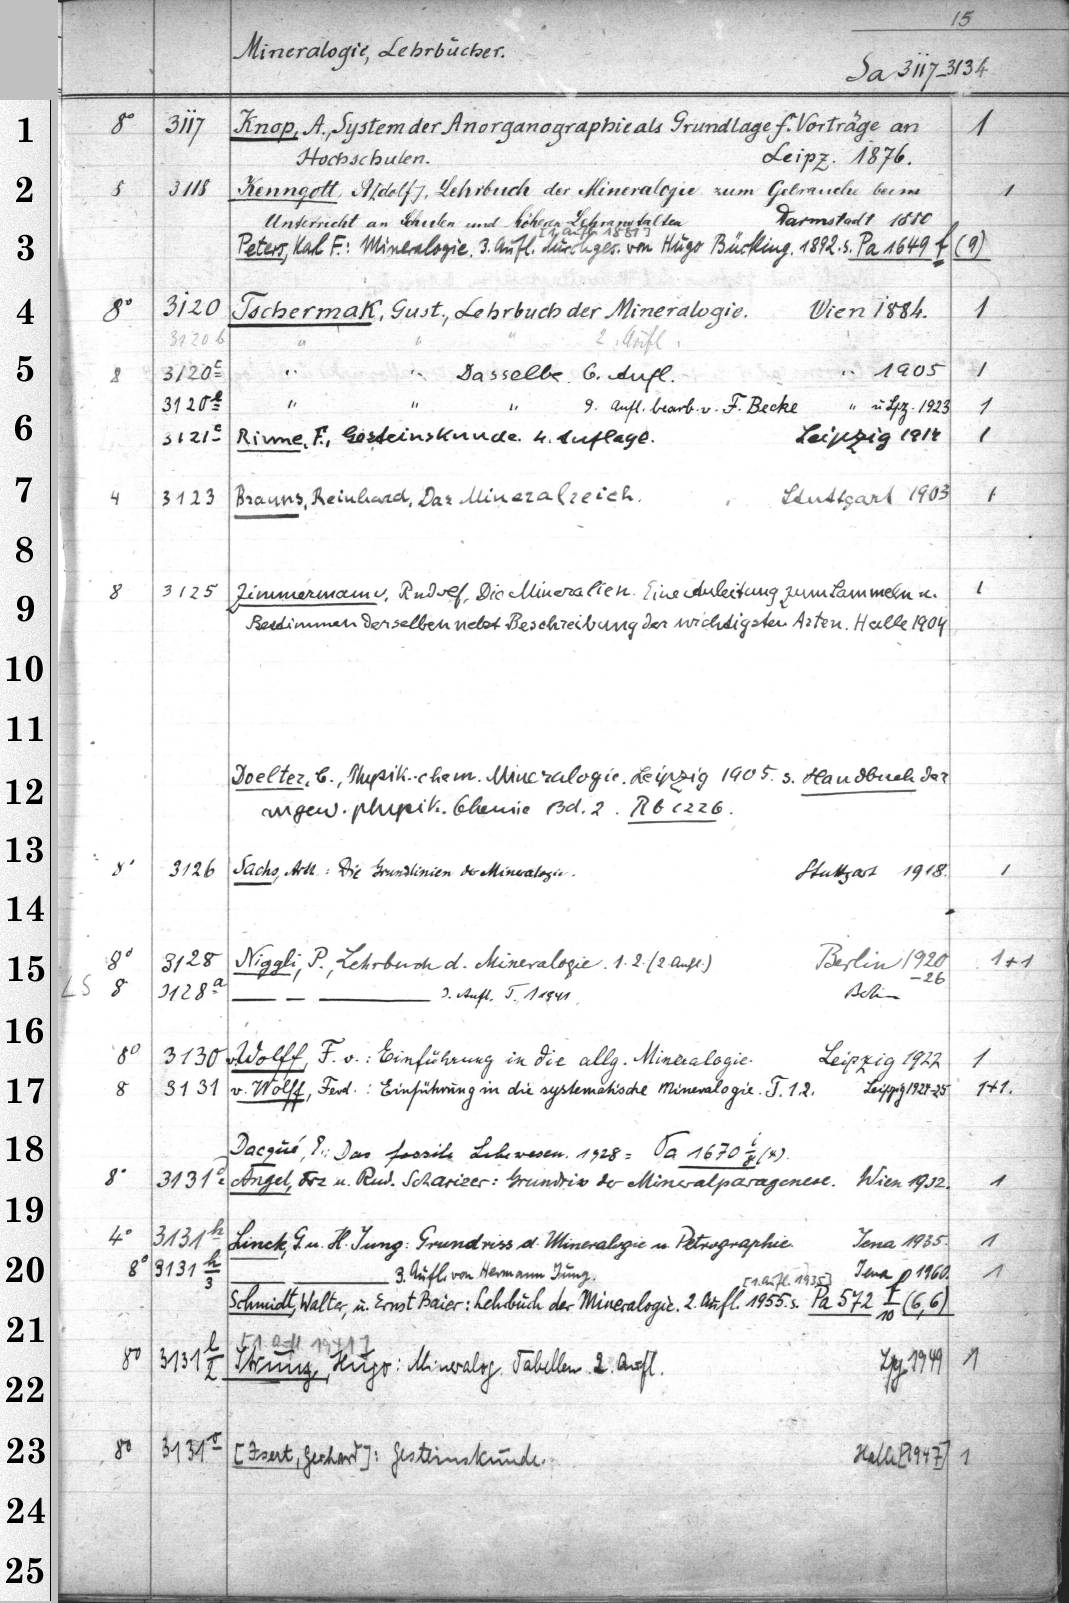 15
Mineralogie, Lehrbücher.
Sa 3117-3134
1 8° 3117 Knop, A., System der Anorganographie als Grundlage f. Vorträge an 1
Hochschulen. Leipz. 1876.
2 8 3118 Kenngott, A[dolf], Lehrbuch der Mineralogie zum Gebrauche beim 1
Unterricht an Schulen und höhern Lehranstalten Darmstadt 1880
[1. Aufl. 1881]
3 Peters, Karl F.: Mineralogie. 3. Aufl. durchges. von Hugo Bücking. 1892. s. Pa 1649 f (9)
4 8° 3120 Tschermak, Gust., Lehrbuch der Mineralogie. Wien 1884. 1
3120 b " " " 2. Aufl.
5 8 3120 c " " Dasselbe. 6. Aufl. " 1905 1
3120 " " " 9. Aufl. bearb. v. F. Becke " u. Lpz. 1923 1
6 3121 c Rinne, F., Gesteinskunde. 4. Auflage. Leipzig 1914 1
7 4 3123 Brauns, Reinhard, Das Mineralreich. Stuttgart 1903 1
8
9 8 3125 Zimmermann, Rudolf, Die Mineralien. Eine Anleitung zum Sammeln u. 1
Bestimmen derselben nebst Beschreibung der wichtigsten Arten. Halle 1904
10
11
12 Doelter, C., Physik.-chem. Mineralogie. Leipzig 1905. s. Handbuch der
angew. physik. Chemie Bd. 2. Rb 1226.
13 8° 3126 Sachs, Arth.: Die Grundlinien der Mineralogie. Stuttgart 1918. 1
14
15 8° 3128 Niggli, P., Lehrbuch d. Mineralogie. 1.2. (2 Aufl.) Berlin 1920 1+1
-26
LS 8 3128 a 3. Aufl. T. 1 1941 Berlin
16 8° 3130 v. Wolff, F. v.: Einführung in die allg. Mineralogie. Leipzig 1922 1
17 8 3131 v. Wolff, Ferd.: Einführung in die systematische Mineralogie. T. 1 2. Leipzig 1924-25 1+1.
18 Dacqué, E.: Das fossile Lebewesen. 1928 = Ta 1670
8° 3131 c Angel, Frz u. Rud. Scharizer: Grundriss der Mineralparagenese. Wien 1932. 1
19 4° 3131 h Linck, G. u. H. Jung: Grundriss d. Mineralogie u. Petrographie. Jena 1935. 1
20 8° 3131 h/3 3. Aufl. von Hermann Jung. Jena 1960. 1
[1. Aufl. 1935]
Schmidt, Walter, u. Ernst Baier: Lehrbuch der Mineralogie. 2. Aufl. 1955. s. Pa 572 f/10 (6,6)
21 [1. Aufl. 1941]
8° 3131 l/2 Strunz, Hugo: Mineralog. Tabellen. 2. Aufl. Lpz. 1949 1
22
23 8° 3131 [Isert, Gerhard]: Gesteinskunde. Halle [1947] 1
24
25